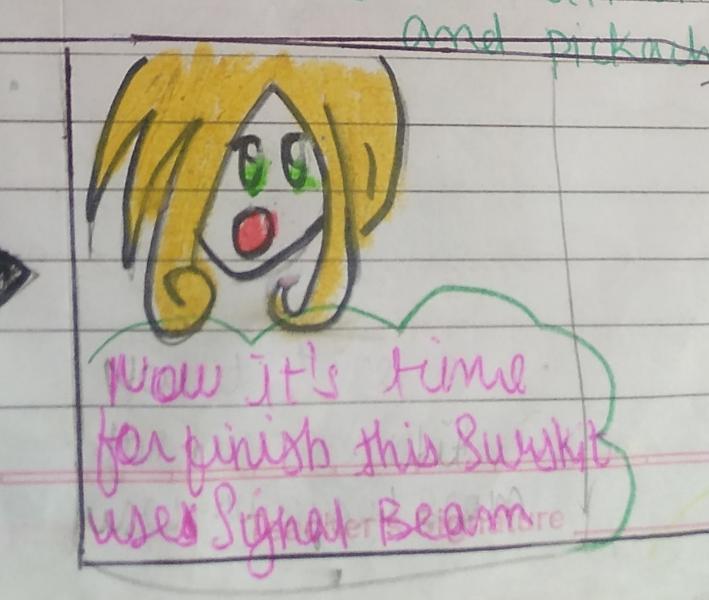 and
Now it's time
for finish this Surskit
uses Signal Beam